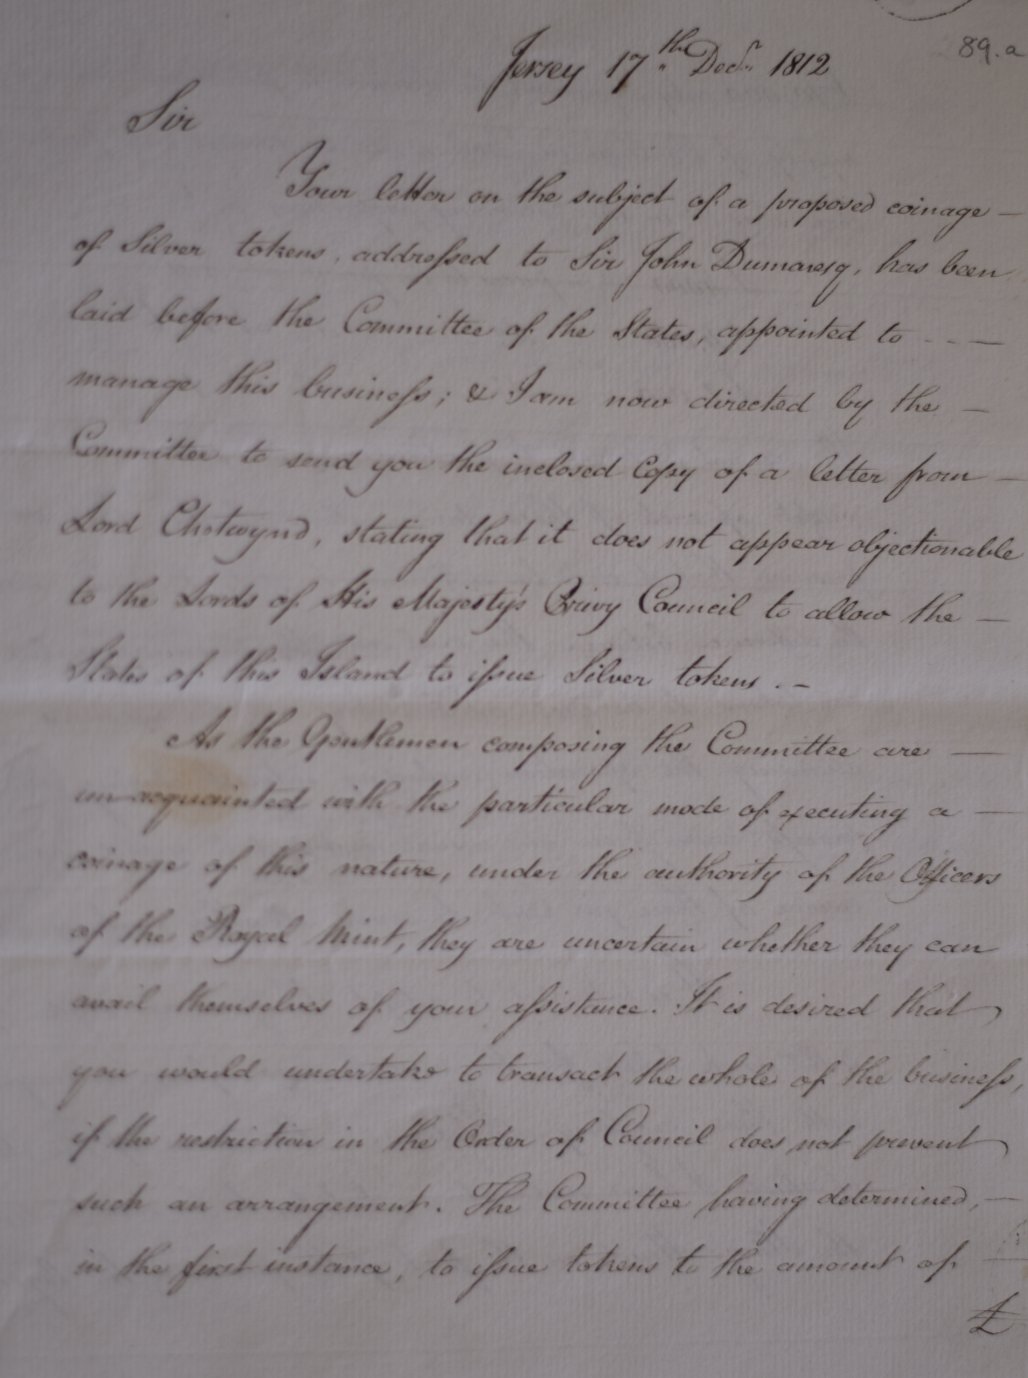 89.a
Jersey 17th Decr. 1812
Sir
Your letter on the subject of a proposed coinage —
of Silver tokens, addreſsed to Sir John Dumaresq, has been
laid before the Committee of the States, appointed to - - —
manage this busineſs; & I am now directed by the —
Committee to send you the inclosed Copy of a letter from —
Lord Chetwynd, stating that it does not appear objectionable
to the Lords of His Majesty's Privy Council to allow the —
States of this Island to iſsue Silver tokens. —
As the Gentlemen composing the Committee are —
un-acquainted with the particular mode of executing a —
coinage of this nature, under the authority of the Officers
of the Royal Mint, they are uncertain whether they can
avail themselves of your aſsistance. It is desired that
you would undertake to transact the whole of the busineſs,
if the restriction in the Order of Council does not prevent
such an arrangement. The Committee having determined, —
in the first instance, to iſsue tokens to the amount of —
£